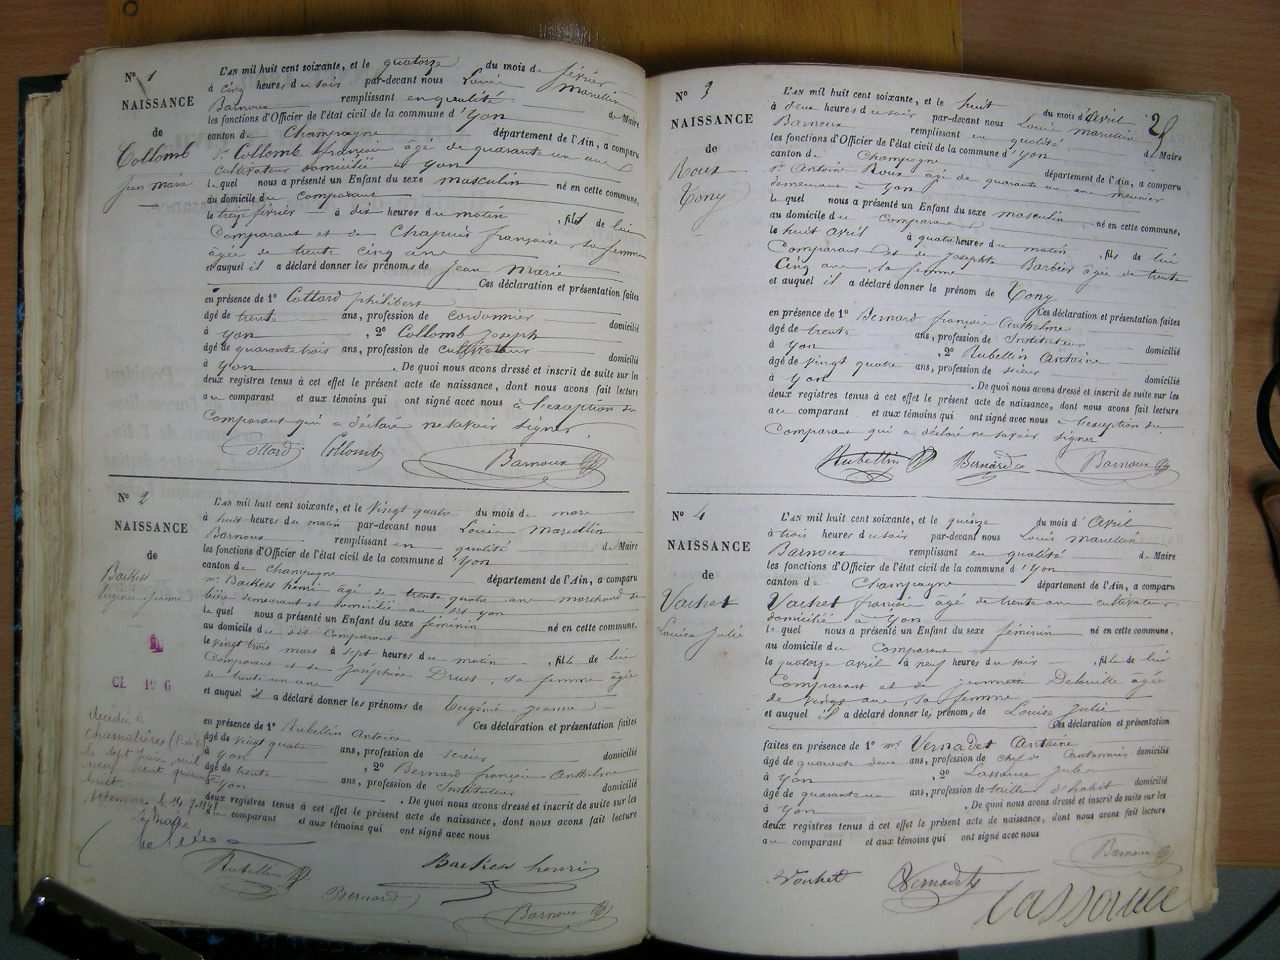 N° 1
NAISSANCE
de
Collomb
Jean Marie
L'AN mil huit cent soixante, et le quatorze du mois de février
à cinq heures du soir par-devant nous Louis Marcellin
Barnoux remplissant en qualité de Maire
les fonctions d'Officier de l'état civil de la commune d'Yon
canton de Champagne département de l'Ain, a comparu
Sr Collomb françois âgé de quarante un ans
cultivateur domicilié à Yon
lequel nous a présenté un Enfant du sexe masculin né en cette commune,
au domicile du comparant
le treize février à dix heures du matin, fils de lui
Comparant et de Chapuis françoise sa femme
âgée de trente cinq ans
et auquel il a déclaré donner les prénoms de Jean Marie
Ces déclaration et présentation faites
en présence de 1° Cottard philibert
âgé de trente ans, profession de cordonnier domicilié
à Yon, 2° Collomb Joseph
âgé de quarante trois ans, profession de cultivateur domicilié
à Yon. De quoi nous avons dressé et inscrit de suite sur les
deux registres tenus à cet effet le présent acte de naissance, dont nous avons fait lecture
au comparant et aux témoins qui ont signé avec nous à l'exception du
Comparant qui a déclaré ne savoir signer.
Cottard Collomb Barnoux
N° 2
NAISSANCE
de
Backess
Eugénie Jeanne
CL
décédée à
L'AN mil huit cent soixante, et le vingt quatre du mois de mars
à huit heures du matin par-devant nous Louis Marcellin
Barnoux remplissant en qualité de Maire
les fonctions d'Officier de l'état civil de la commune d'Yon
canton de Champagne département de l'Ain, a comparu
Mr Backess henri âgé de trente quatre ans marchand de
bière demeurant et domicilié au dit Yon
lequel nous a présenté un Enfant du sexe féminin né en cette commune,
au domicile du dit Comparant
le vingt trois mars à sept heures du matin, fille de lui
Comparant et de Joséphine Druet, sa femme âgée
de trente un ans
et auquel il a déclaré donner les prénoms de Eugénie Jeanne
Ces déclaration et présentation faites
en présence de 1° Rubellin Antoine
âgé de vingt quatre ans, profession de scieur domicilié
à Yon, 2° Bernard françois Anthelme
âgé de trente ans, profession de Instituteur domicilié
à Yon. De quoi nous avons dressé et inscrit de suite sur les
deux registres tenus à cet effet le présent acte de naissance, dont nous avons fait lecture
au comparant et aux témoins qui ont signé avec nous
Rubellin Backess henri
Bernard Barnoux
N° 3
NAISSANCE
de
Roux
Tony
L'AN mil huit cent soixante, et le huit du mois d'avril
à deux heures du soir par-devant nous Louis Marcellin
Barnoux remplissant en qualité de Maire
les fonctions d'Officier de l'état civil de la commune d'Yon
canton de Champagne département de l'Ain, a comparu
Sr Antoine Roux âgé de quarante un ans meunier
demeurant à Yon
lequel nous a présenté un Enfant du sexe masculin né en cette commune,
au domicile du comparant
le huit avril à quatre heures du matin, fils de lui
Comparant et de Josephte Barbier âgée de trente
Cinq ans sa femme
et auquel il a déclaré donner le prénom de Tony
Ces déclaration et présentation faites
en présence de 1° Bernard françois Anthelme
âgé de trente ans, profession de Instituteur domicilié
à Yon, 2° Rubellin Antoine
âgé de vingt quatre ans, profession de scieur domicilié
à Yon. De quoi nous avons dressé et inscrit de suite sur les
deux registres tenus à cet effet le présent acte de naissance, dont nous avons fait lecture
au comparant et aux témoins qui ont signé avec nous à l'exception du
Comparant qui a déclaré ne savoir signer
Rubellin Bernard Barnoux
N° 4
NAISSANCE
de
Vachet
Louise Julie
L'AN mil huit cent soixante, et le quinze du mois d'avril
à trois heures du soir par-devant nous Louis Marcellin
Barnoux remplissant en qualité de Maire
les fonctions d'Officier de l'état civil de la commune d'Yon
canton de Champagne département de l'Ain, a comparu
Vachet françois âgé de trente ans cultivateur
domicilié à Yon
lequel nous a présenté un Enfant du sexe féminin né en cette commune,
au domicile du Comparant
le quatorze avril à neuf heures du soir, fille de lui
Comparant et de Jeannette âgée
de vingt ans, sa femme
et auquel il a déclaré donner les prénoms de Louise Julie
Ces déclaration et présentation
faites en présence de 1° Mr Vernadet Antoine
âgé de quarante deux ans, profession de chef de Cantonnier domicilié
à Yon, 2° Julien
âgé de quarante un ans, profession de tailleur d'habit domicilié
à Yon. De quoi nous avons dressé et inscrit de suite sur les
deux registres tenus à cet effet le présent acte de naissance, dont nous avons fait lecture
au comparant et aux témoins qui ont signé avec nous
Barnoux
Vachet Vernadet